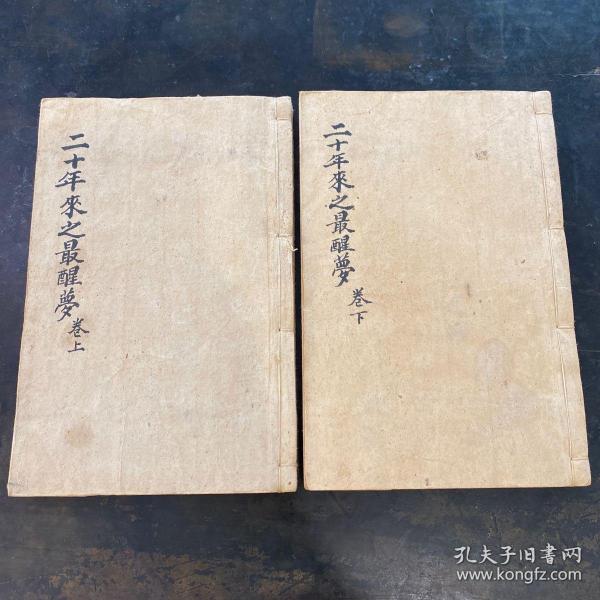 二十年來之最醒夢
卷上
二十年來之最醒夢
卷下
孔夫子旧书网
www.kongfz.com